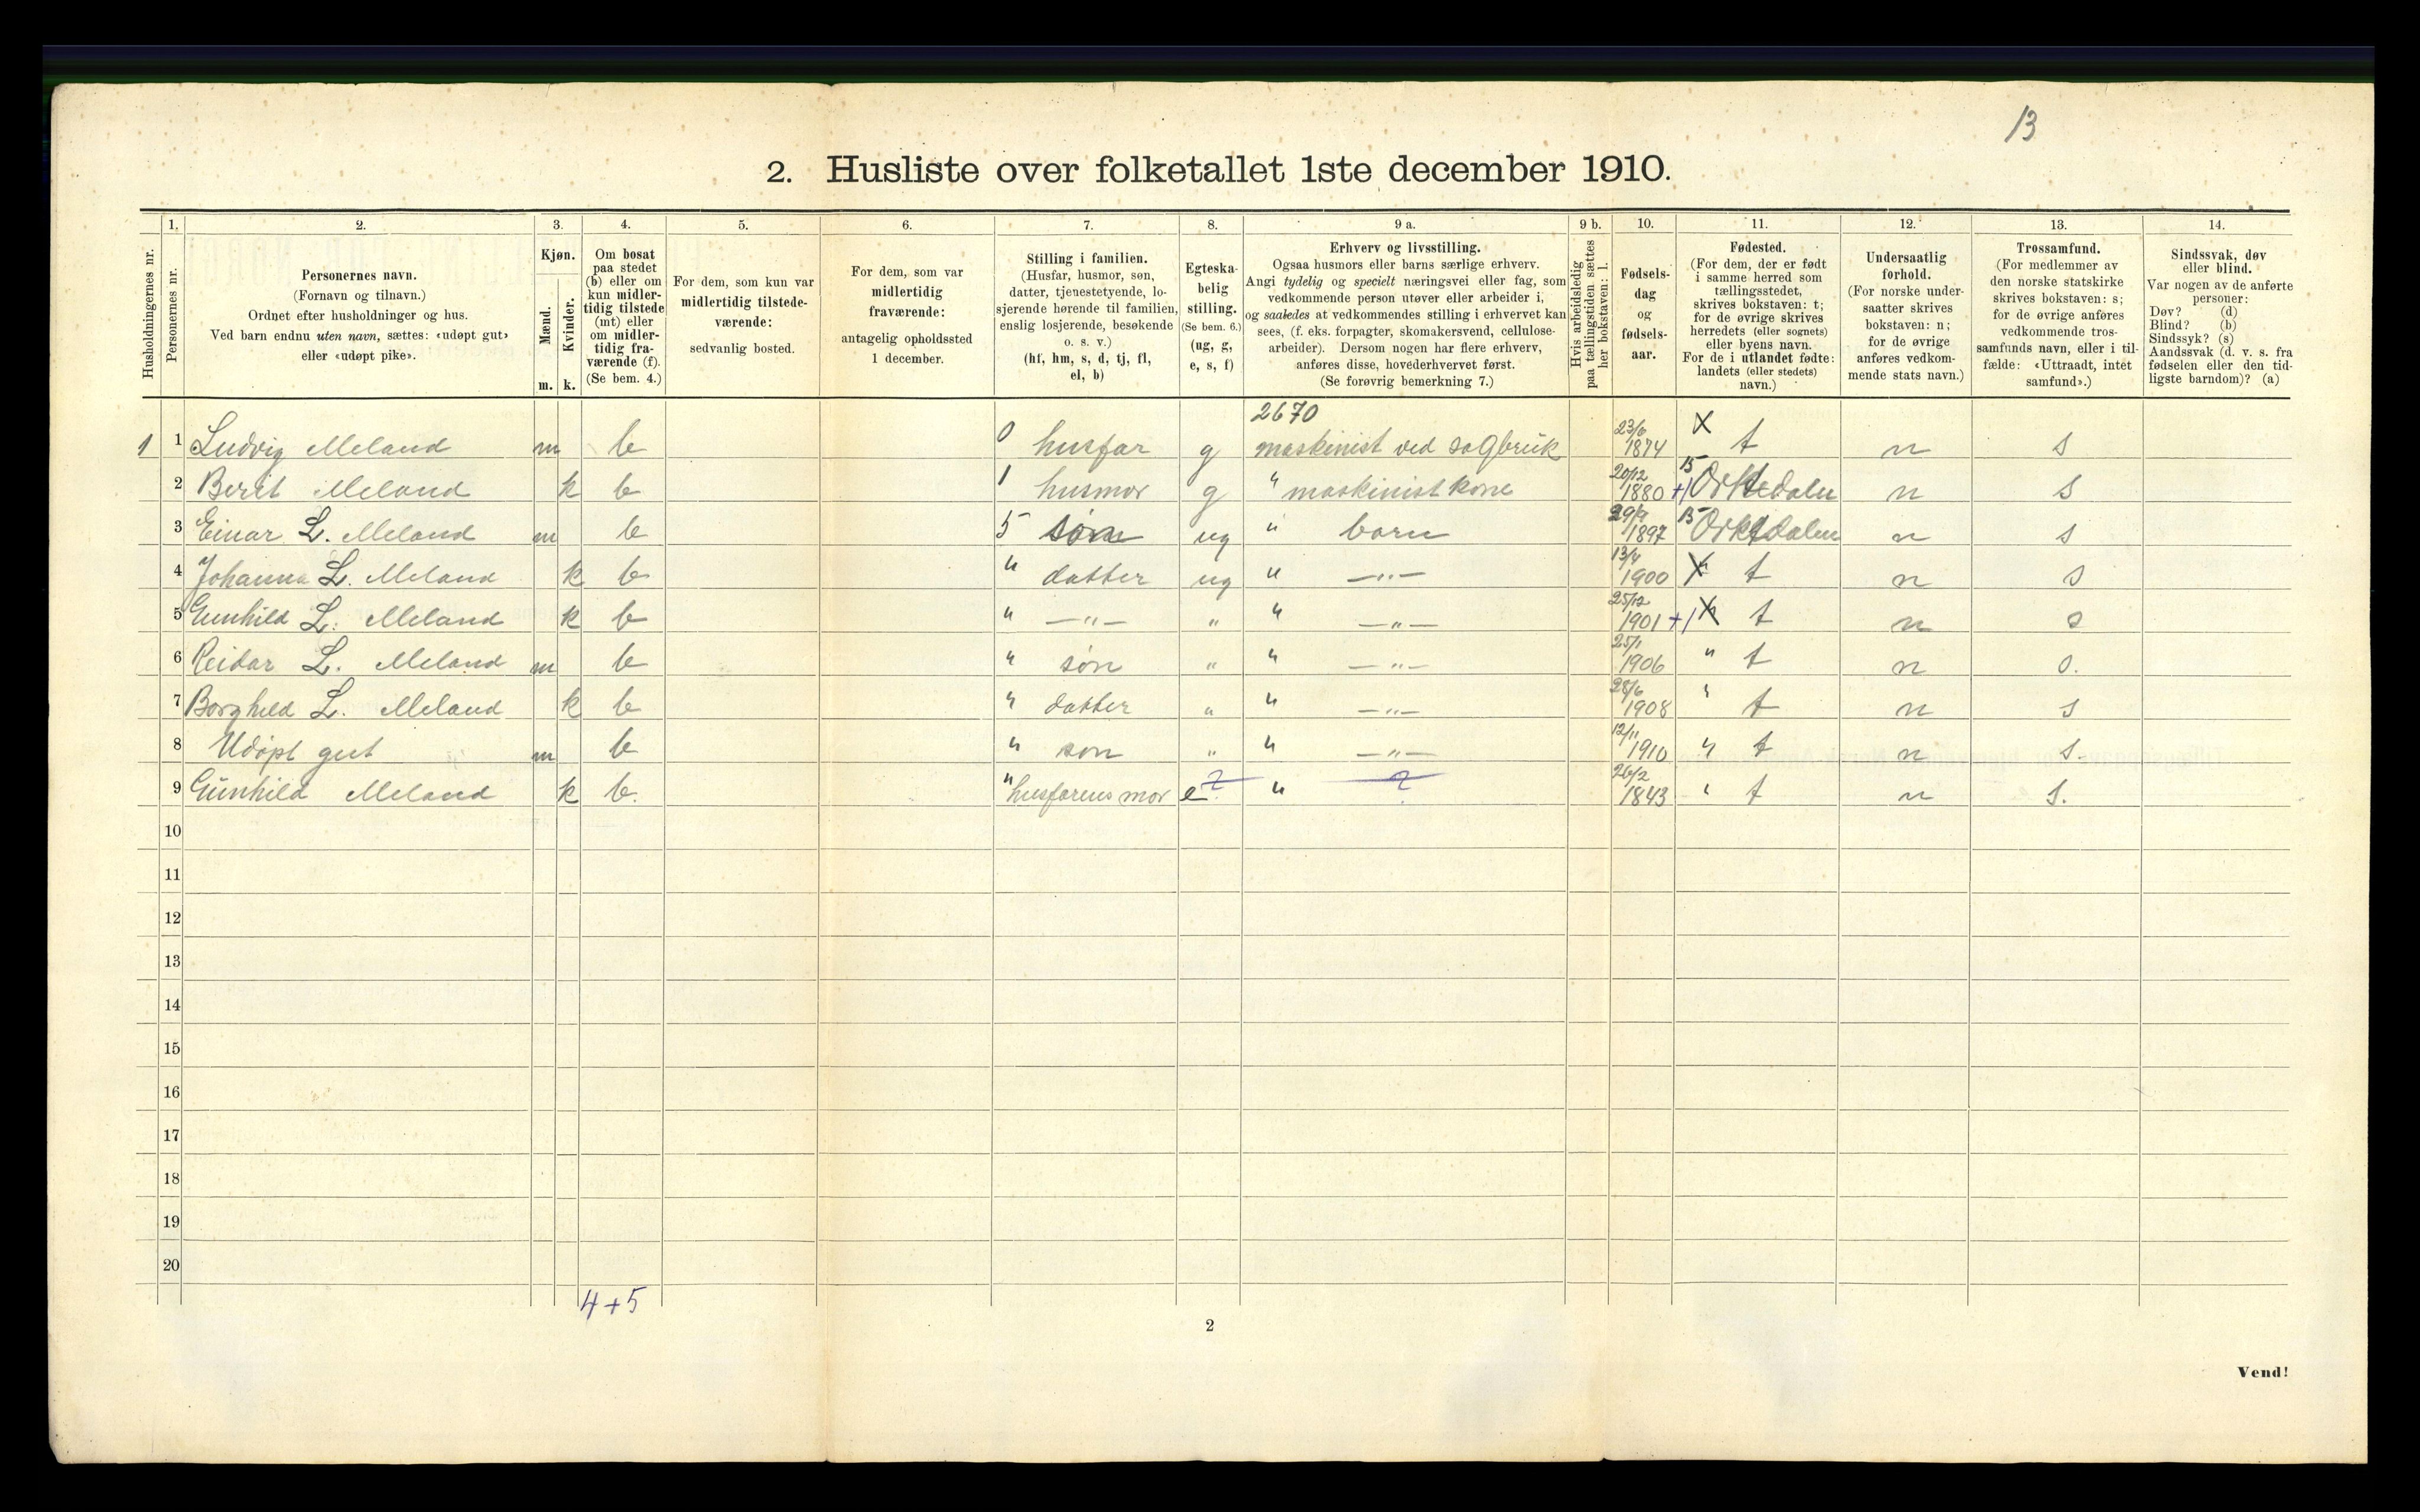 13
2. Husliste over folketallet 1ste december 1910.
Husholdningernes nr.
1.
Personernes nr.
2.
Personernes navn.
(Fornavn og tilnavn.)
Ordnet efter husholdninger og hus.
Ved barn endnu uten navn, sættes: «udøpt gut»
eller «udøpt pike».
3.
Kjøn.
Mænd.
Kvinder.
m. k.
4.
Om bosat
paa stedet
(b) eller om
kun midler-
tidig tilstede
(mt) eller
om midler-
tidig fra-
værende (f).
(Se bem. 4.)
5.
For dem, som kun var
midlertidig tilstede-
værende:
sedvanlig bosted.
6.
For dem, som var
midlertidig
fraværende:
antagelig opholdssted
1 december.
7.
Stilling i familien.
(Husfar, husmor, søn,
datter, tjenestetyende, lo-
sjerende hørende til familien,
enslig losjerende, besøkende
o. s. v.)
(hf, hm, s, d, tj, fl,
el, b)
8.
Egteska-
belig
stilling.
(Se bem. 6.)
(ug, g,
e, s, f)
9 a.
Erhverv og livsstilling.
Ogsaa husmors eller barns særlige erhverv.
Angi tydelig og specielt næringsvei eller fag, som
vedkommende person utøver eller arbeider i,
og saaledes at vedkommendes stilling i erhvervet kan
sees, (f. eks. forpagter, skomakersvend, cellulose-
arbeider). Dersom nogen har flere erhverv,
anføres disse, hovederhvervet først.
(Se forøvrig bemerkning 7.)
9 b.
Hvis arbeidsledig
paa tællingstiden sættes
her bokstaven: l.
10.
Fødsels-
dag
og
fødsels-
aar.
11.
Fødested.
(For dem, der er født
i samme herred som
tællingsstedet,
skrives bokstaven: t;
for de øvrige skrives
herredets (eller sognets)
eller byens navn.
For de i utlandet fødte:
landets (eller stedets)
navn.)
12.
Undersaatlig
forhold.
(For norske under-
saatter skrives
bokstaven: n;
for de øvrige
anføres vedkom-
mende stats navn.)
13.
Trossamfund.
(For medlemmer av
den norske statskirke
skrives bokstaven: s;
for de øvrige anføres
vedkommende tros-
samfunds navn, eller i til-
fælde: «Uttraadt, intet
samfund».)
14.
Sindssvak, døv
eller blind.
Var nogen av de anførte
personer:
Døv? (d)
Blind? (b)
Sindssyk? (s)
Aandssvak (d. v. s. fra
fødselen eller den tid-
ligste barndom)? (a)
2670
1 1 Ludvig Meland m b 0 husfar g maskinist ved sagbruk 1874 X t n s
2 Berit Meland k b 1 husmor g " maskinist kone 20/12 1880 +1 15 Orkedalen n s
3 Einar L. Meland m b 5 søn ug " barn 29/9 1897 15 Orkedalen n s
4 Johanna L. Meland k b " datter ug " —"— 13/4 1900 X t n s
5 Gunhild L. Meland k b " —"— " " —"— 25/12 1901 +1 X t n s
6 Reidar L. Meland m b " søn " " —"— 25/1 1906 " t n s.
7 Borghild L. Meland k b " datter " " —"— 28/6 1908 " t n s
8 Udøpt gut m b " søn " " —"— 12/11 1910 " t n s.
9 Gunhild Meland k b. " husfarens mor e ? " ? 26/2 1843 " t n s.
10
11
12
13
14
15
16
17
18
19
20
4+5
2
Vend!